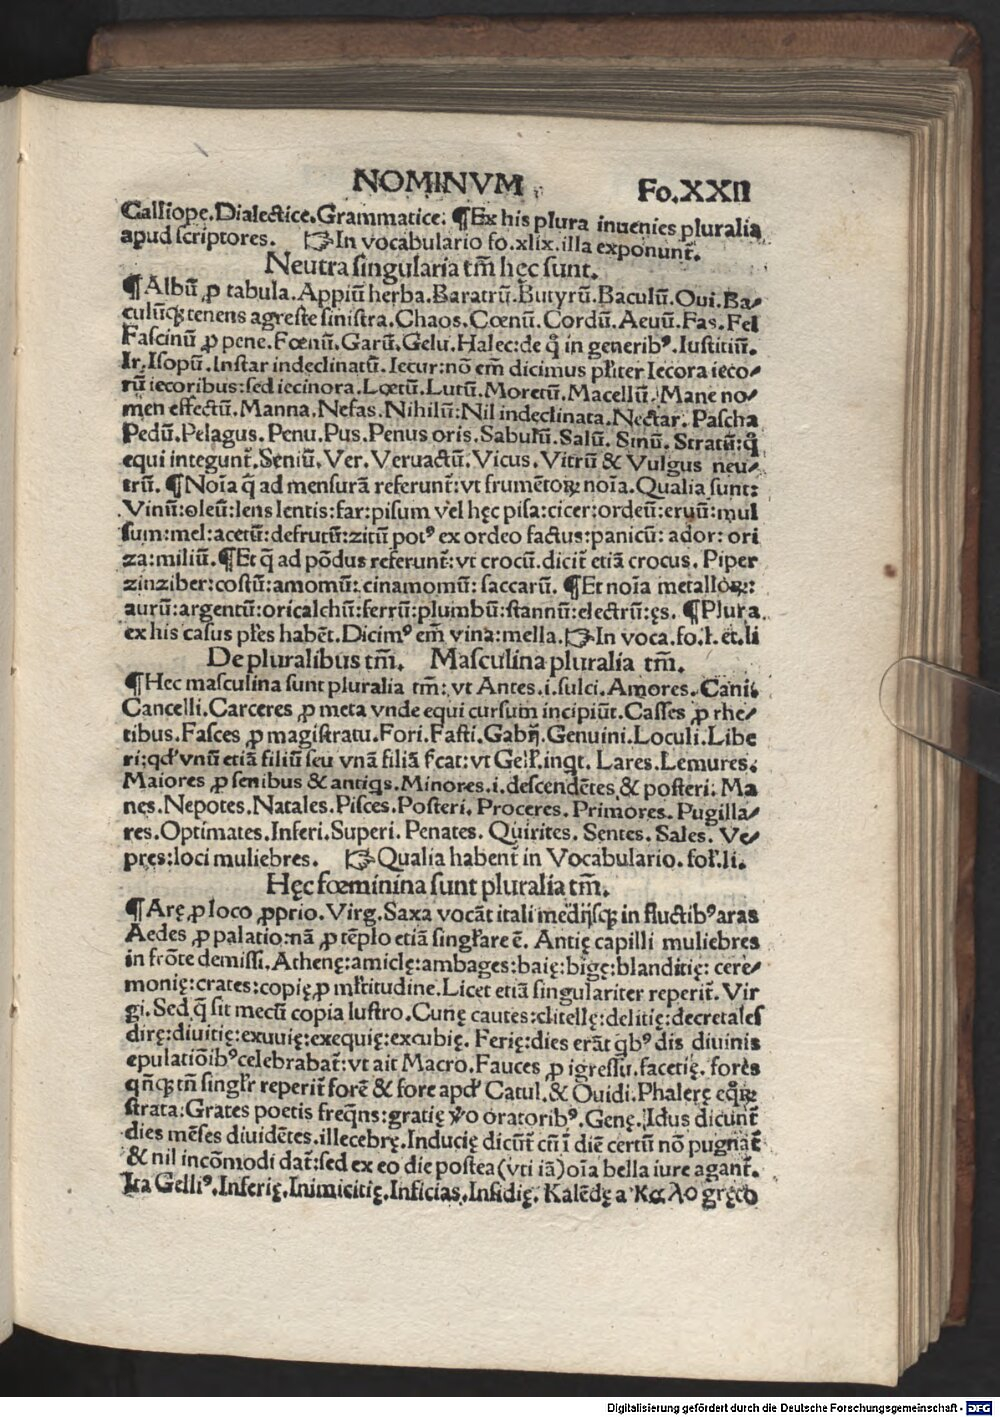 NOMINVM Fo.XXII
Calliope.Dialectice.Grammatice: ¶Ex his plura inuenies pluralia
apud scriptores. ☞In vocabulario fo.xlix.illa exponunt᷑.
Neutra singularia tm̃ hęc sunt.
¶Albũ ꝓ tabula.Appiũ herba.Baratrũ.Butyrũ.Baculũ.Oui.Ba⸗
culũqꝫ tenens agreste sinistra.Chaos.Cœnũ.Cordũ.Aeuũ.Fas.Fel
Fascinũ ꝓ pene.Fœnũ.Garũ.Gelu.Halec:de q̊ in generibꝰ.Iustitiũ.
Ir.Isopũ.Instar indeclinatũ.Iecur:nõ em̃ dicimus pl̃iter Iecora ieco⸗
rũ iecoribus:sed iecinora.Lœtũ.Lutũ.Moretũ.Macellũ.Mane no⸗
men effectũ.Manna.Nefas.Nihilũ:Nil indeclinata.Nectar.Pascha
Pedũ.Pelagus.Penu.Pus.Penus oris.Sabulũ.Salũ.Sinũ.Stratũ:q̊
equi integunt᷑.Seniũ.Ver.Veruactũ.Vicus.Vitrũ & Vulgus neu⸗
trũ. ¶Noĩa q̃ ad mensurã referunt᷑:vt frumẽtoꝝ noĩa.Qualia sunt:
Vinũ:oleũ:lens lentis:far:pisum vel hęc pisa:cicer:ordeũ:eruũ:mul
sum:mel:acetũ:defrutũ:zitũ potꝰ ex ordeo factus:panicũ:ador:ori
za:miliũ.¶Et q̃ ad põdus referunt᷑:vt crocũ.dicit᷑ etiã crocus.Piper
zinziber:costũ:amomũ:cinamomũ:saccarũ. ¶Et noĩa metalloꝝ:
aurũ:argentũ:oricalchũ:ferrũ:plumbũ:stannũ:electrũ:ęs. ¶Plura
ex his casus pl̃es habẽt.Dicimꝰ em̃ vina:mella.☞In voca.fo.l.et.li
De pluralibus tm̃. Masculina pluralia tm̃.
¶Hec masculina sunt pluralia tm̃:vt Antes.i.sulci.Amores.Cani.
Cancelli.Carceres ꝓ meta vnde equi cursum incipiũt.Casses ꝓ rhe⸗
tibus.Fasces ꝓ magistratu.Fori.Fasti.Gabij.Genuini.Loculi.Libe
ri:qđ vnũ etiã filiũ seu vnã filiã s̃cat:vt Gell̃.inqt. Lares.Lemures.
Maiores ꝓ senibus & antiqs.Minores.i.descendẽtes & posteri.Ma
nes.Nepotes.Natales.Pisces.Posteri.Proceres.Primores.Pugilla⸗
res.Optimates.Inferi.Superi.Penates.Quirites.Sentes.Sales.Ve⸗
pres:loci muliebres. ☞Qualia habent᷑ in Vocabulario.fol̃.li.
Hęc fœminina sunt pluralia tm̃.
¶Arę ꝓ loco ꝓprio.Virg.Saxa vocãt itali medijsqꝫ in fluctibꝰ aras
Aedes ꝓ palatio:nã ꝓ tẽplo etiã singl̃are ẽ. Antię capilli muliebres
in frõte demissi.Athenę:amiclę:ambages:baię:bigę:blanditię:cere⸗
monię:crates:copię ꝓ ml̃titudine.Licet etiã singulariter reperit᷑.Vir
gi.Sed q̃ sit mecũ copia lustro.Curię cautes:clitellę:delitię:decretales
dirę:diuitię:exuuię:exequię:excubię. Ferię:dies erãt qbꝰ dis diuinis
epulatiõibꝰ celebrabat᷑:vt ait Macro.Fauces ꝓ igressu.facetię.fores
qñqꝫ tñ singl̃r reperit᷑ forẽ & fore apđ Catul.& Ouidi.Phalerę eqꝝ
strata:Grates poetis freq̃ns:gratię v̊o oratoribꝰ.Genę.Idus dicunt᷑
dies mẽses diuidẽtes.illecebrę.Inducię dicũt᷑ cũ ĩ diẽ certũ nõ pugnãt᷑
& nil incõmodi dat᷑:sed ex eo die postea(vti iã)oĩa bella iure agant᷑.
Ita Gelliꝰ.Inferię.Inimicitię.Inficias.Insidię.Kalẽdę a καλο gręco
Digitalisierung gefördert durch die Deutsche Forschungsgemeinschaft - DFG